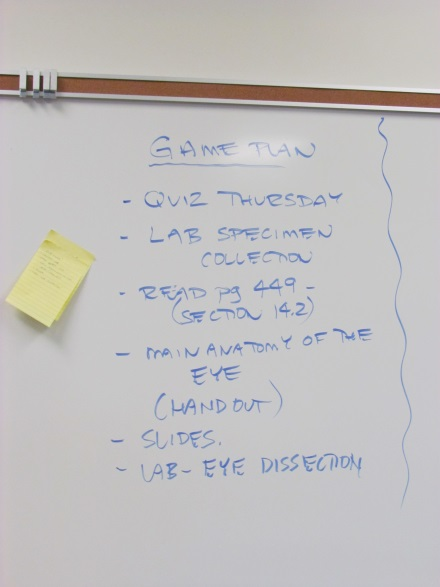 GAME PLAN
- QUIZ THURSDAY
- LAB SPECIMEN
COLLECTION
- READ pg 449 -
(SECTION 14.2)
- MAIN ANATOMY OF THE
EYE
(HANDOUT)
- SLIDES.
- LAB - EYE DISSECTION